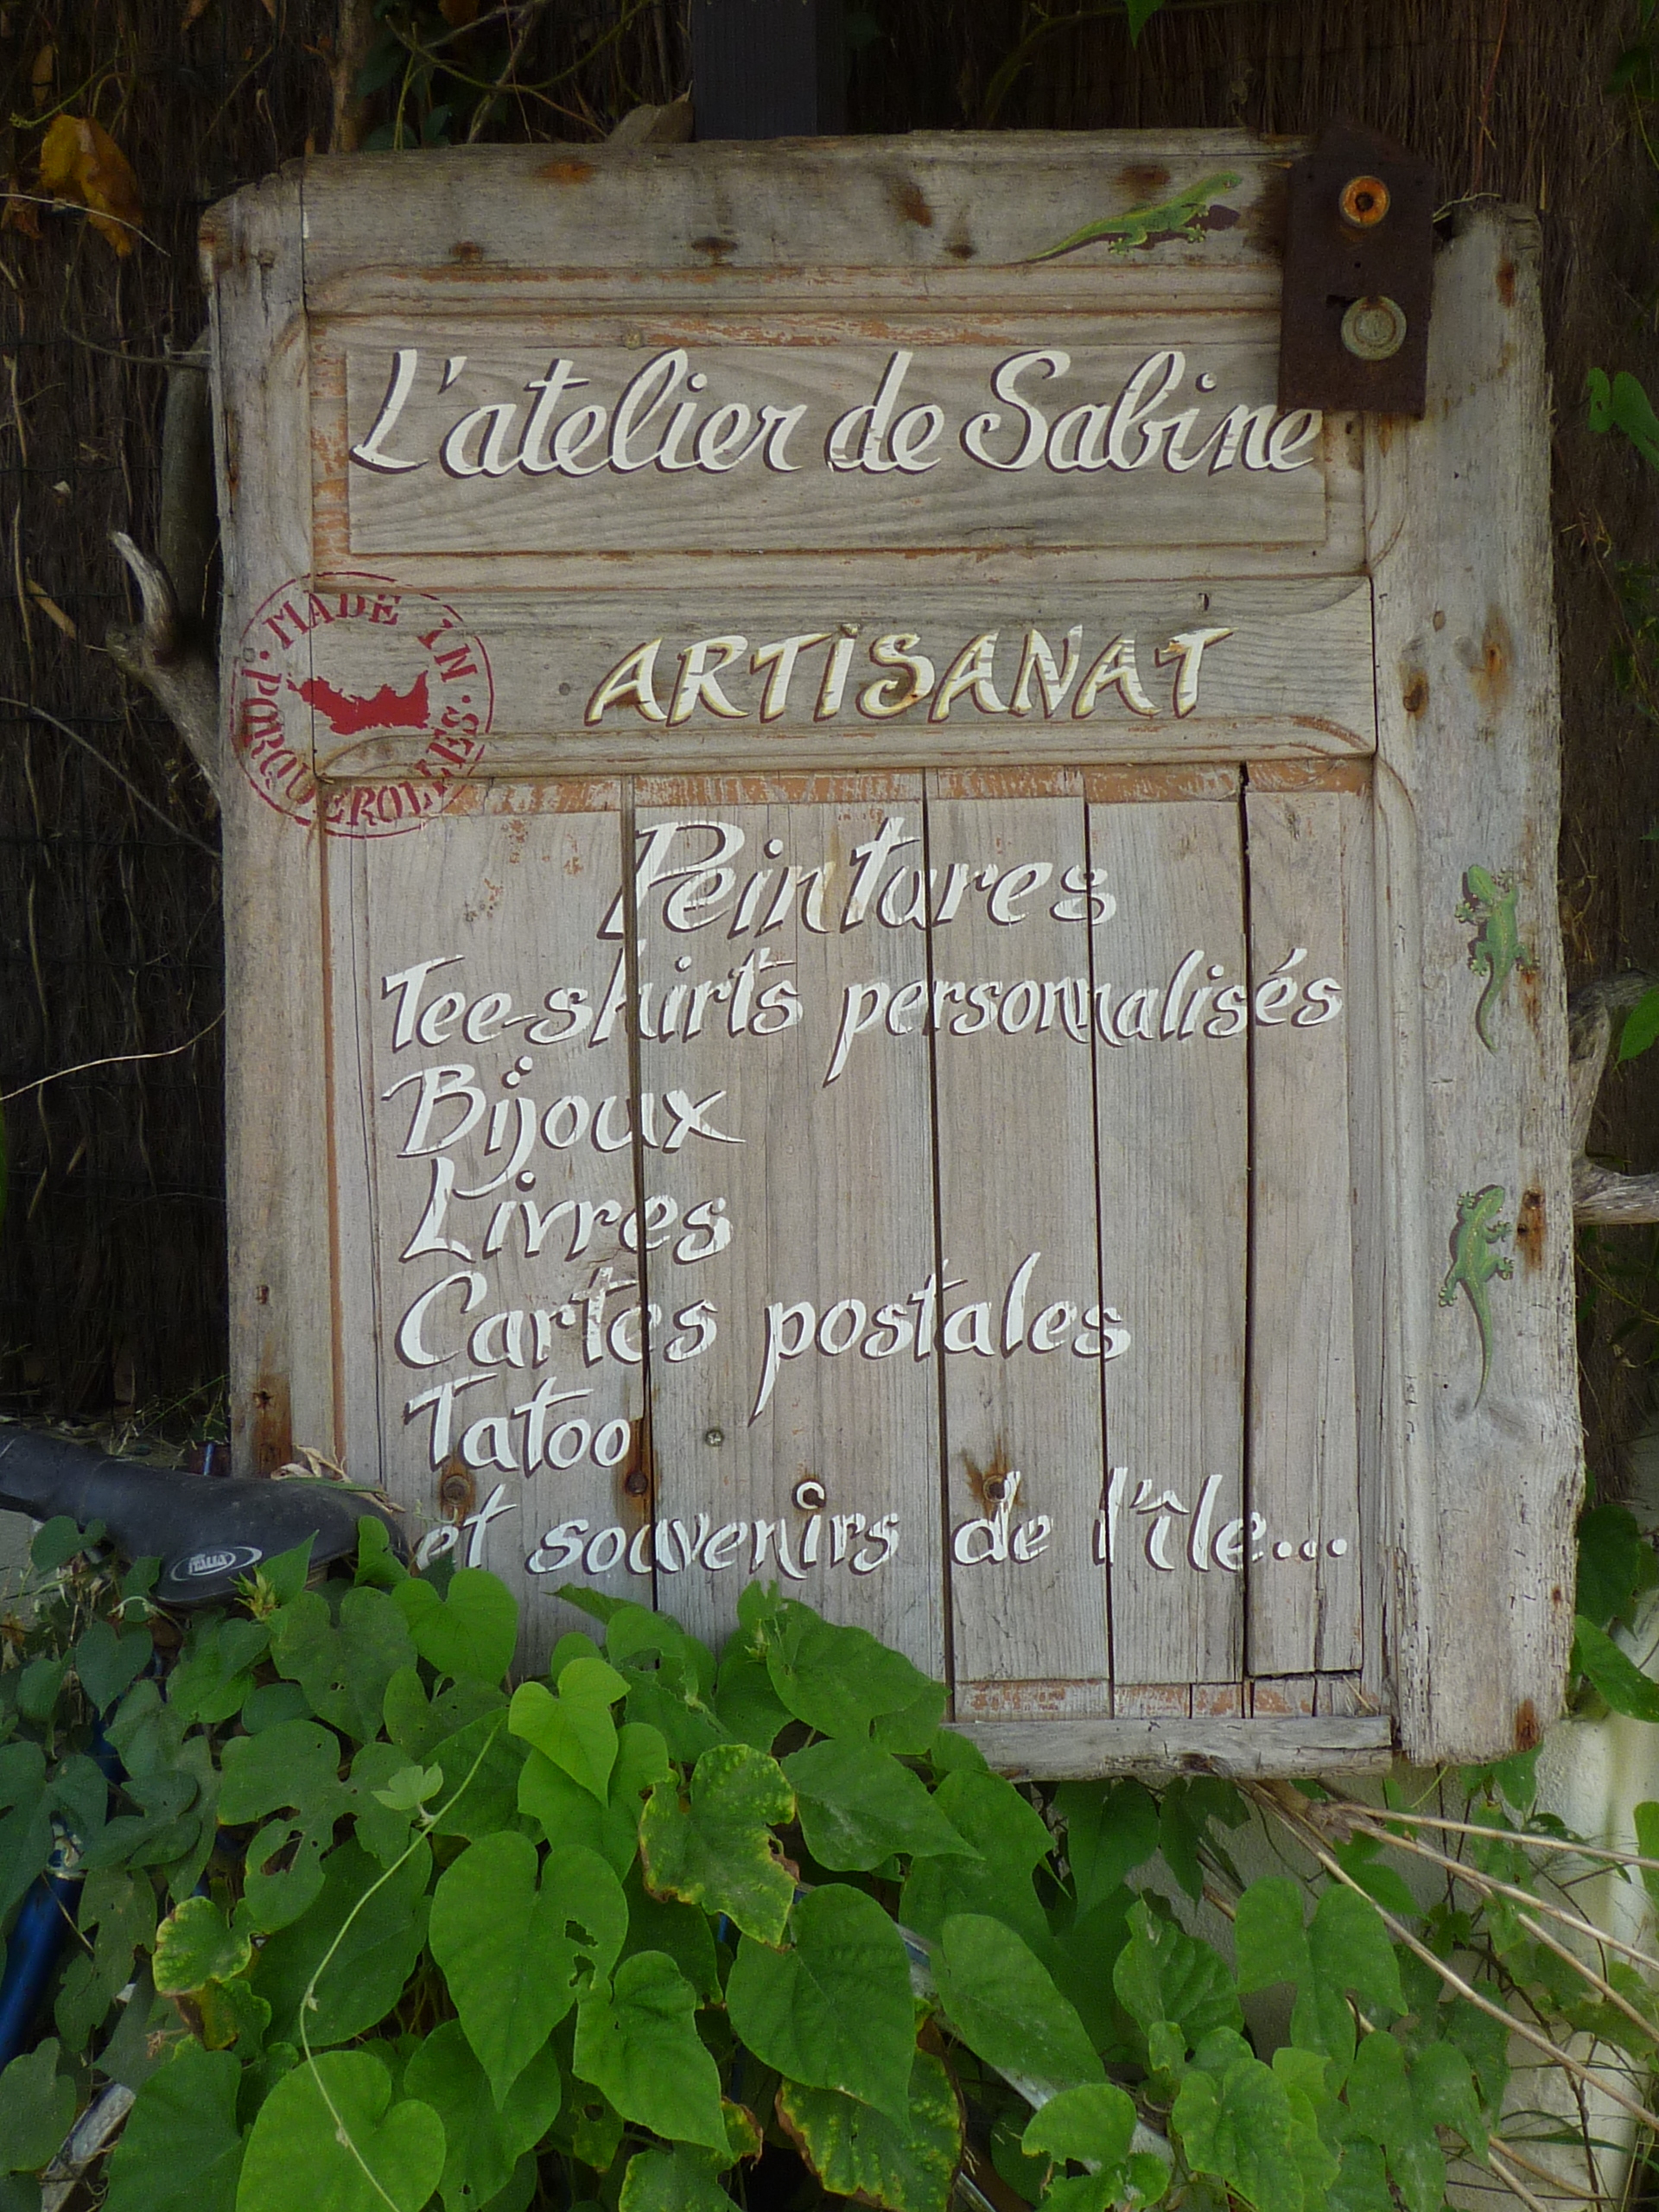 L'atelier de Sabine
MADE IN PORQUEROLLES
ARTISANAT
Peintures
Tee-shirts personnalisés
Bijoux
Livres
Cartes postales
Tatoo
et souvenirs de l'île...
ITALIA